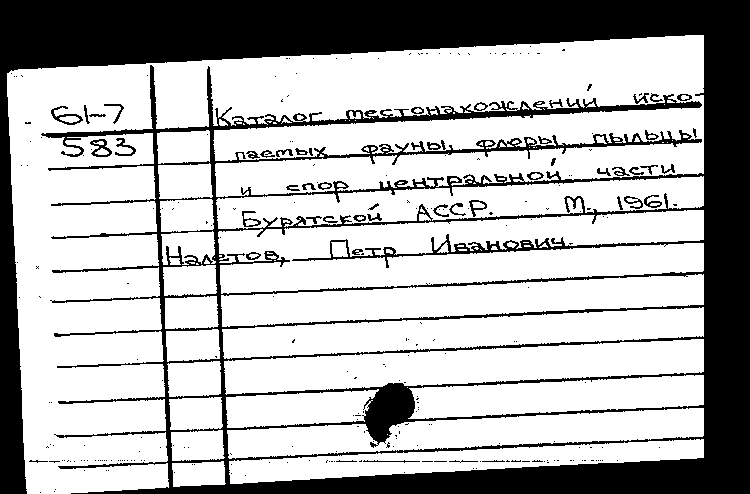 61-7
Каталог местонахождений иско-
583
паемых фауны, флоры, пыльцы
и спор центральной части
Бурятской АССР. М., 1961.
Налетов, Петр Иванович.